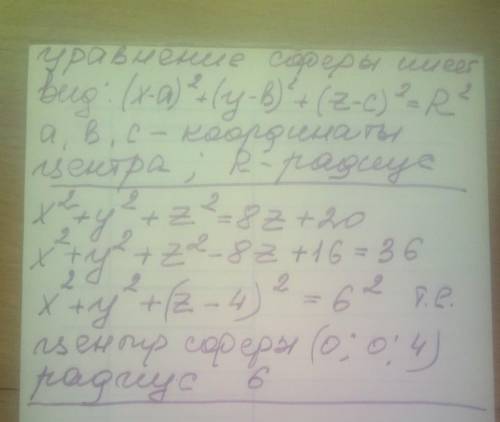 уравнение сферы имеет
вид: (x-a)²+(y-в)²+(z-c)²=R²
a, в, c – координаты
центра; R-радиус
x²+y²+z²=8z+20
x²+y²+z²-8z+16=36
x²+y²+(z-4)²=6² т.е.
центр сферы (0; 0; 4)
радиус 6